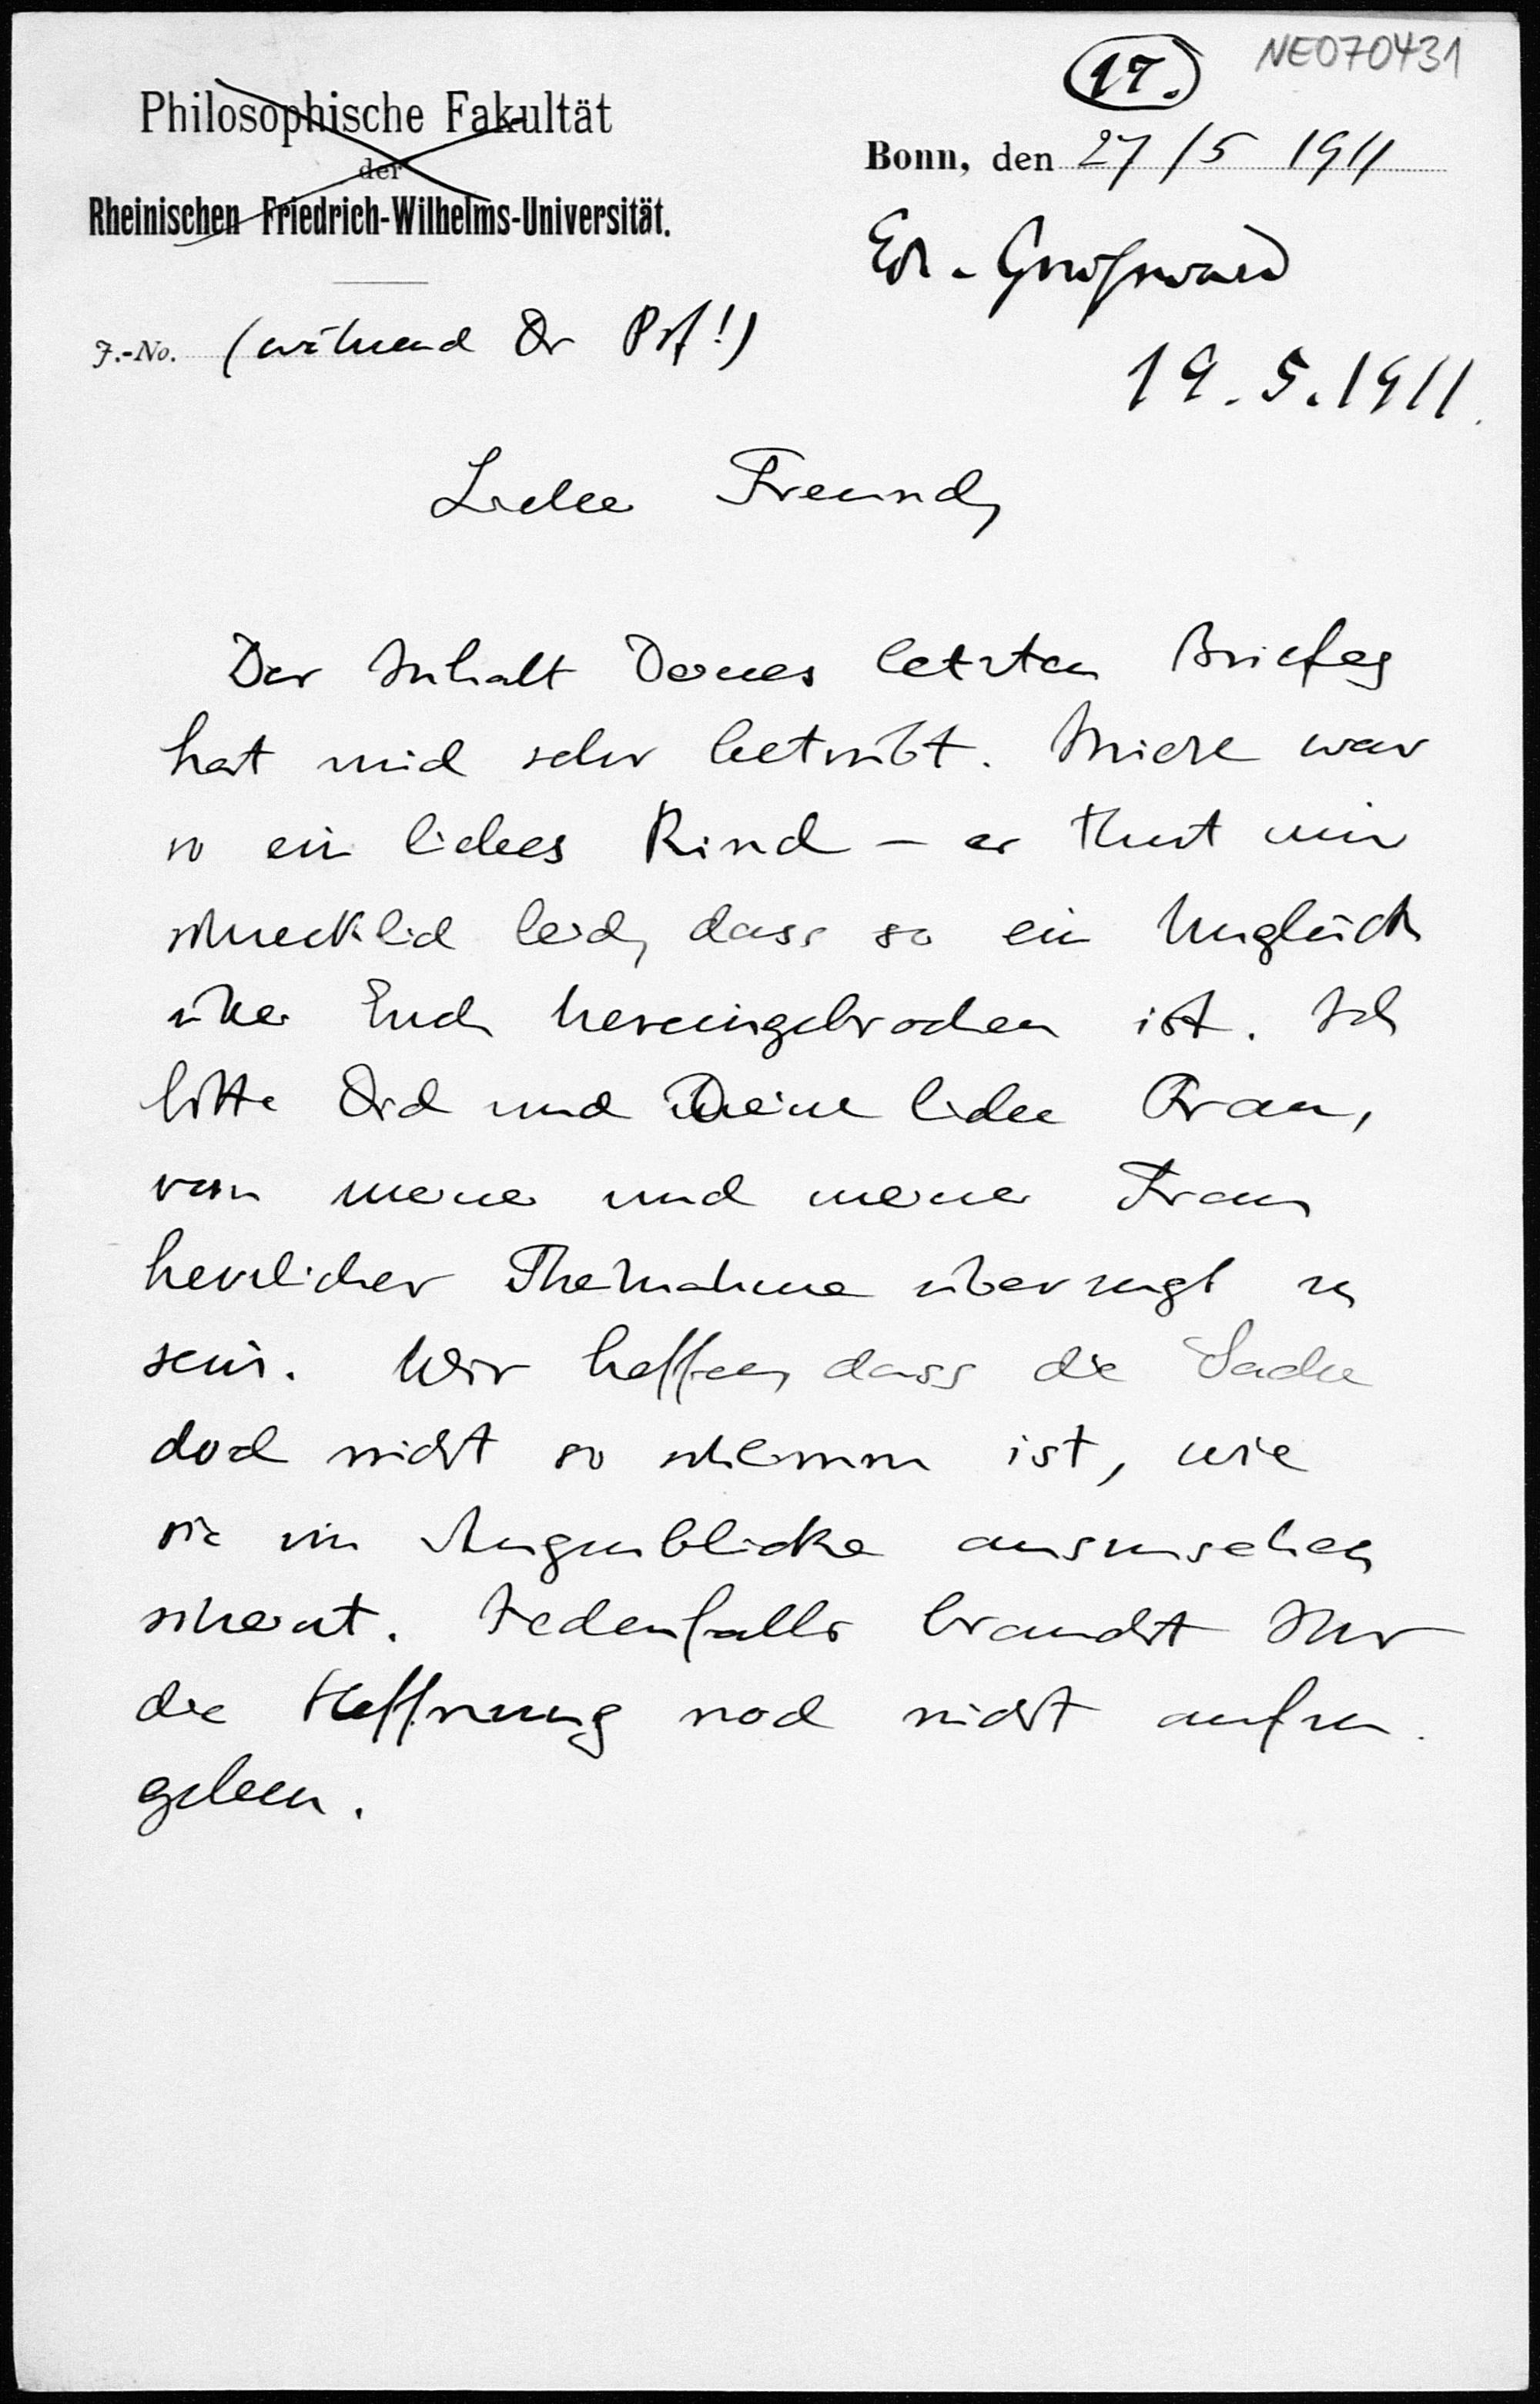 NE070431
17.
Philosophische Fakultät
der
Rheinischen Friedrich-Wilhelms-Universität.
Bonn, den 27/5 1911
19.5.1911.
J.-No. (während der Prf!)
Lieber Freund,
Der Inhalt Deines letzten Briefes
hat mich sehr betrübt. war
so ein liebes Kind – es thut mir
schrecklich leid, dass so ein Unglück
über Euch hereingebrochen ist. Ich
bitte Dich und Deine liebe Frau,
von meiner und meiner Frau
herzlicher Theilnahme überzeugt zu
sein. Wir hoffen, dass die Sache
doch nicht so schlimm ist, wie
sie im Augenblicke auszusehen
scheint. Jedenfalls braucht Ihr
die Hoffnung noch nicht aufzu
geben.